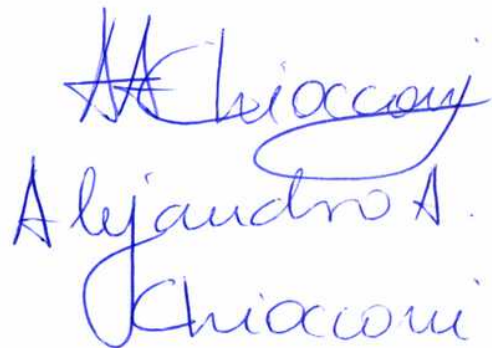 AAChiocconi
Alejandro A.
Chiocconi